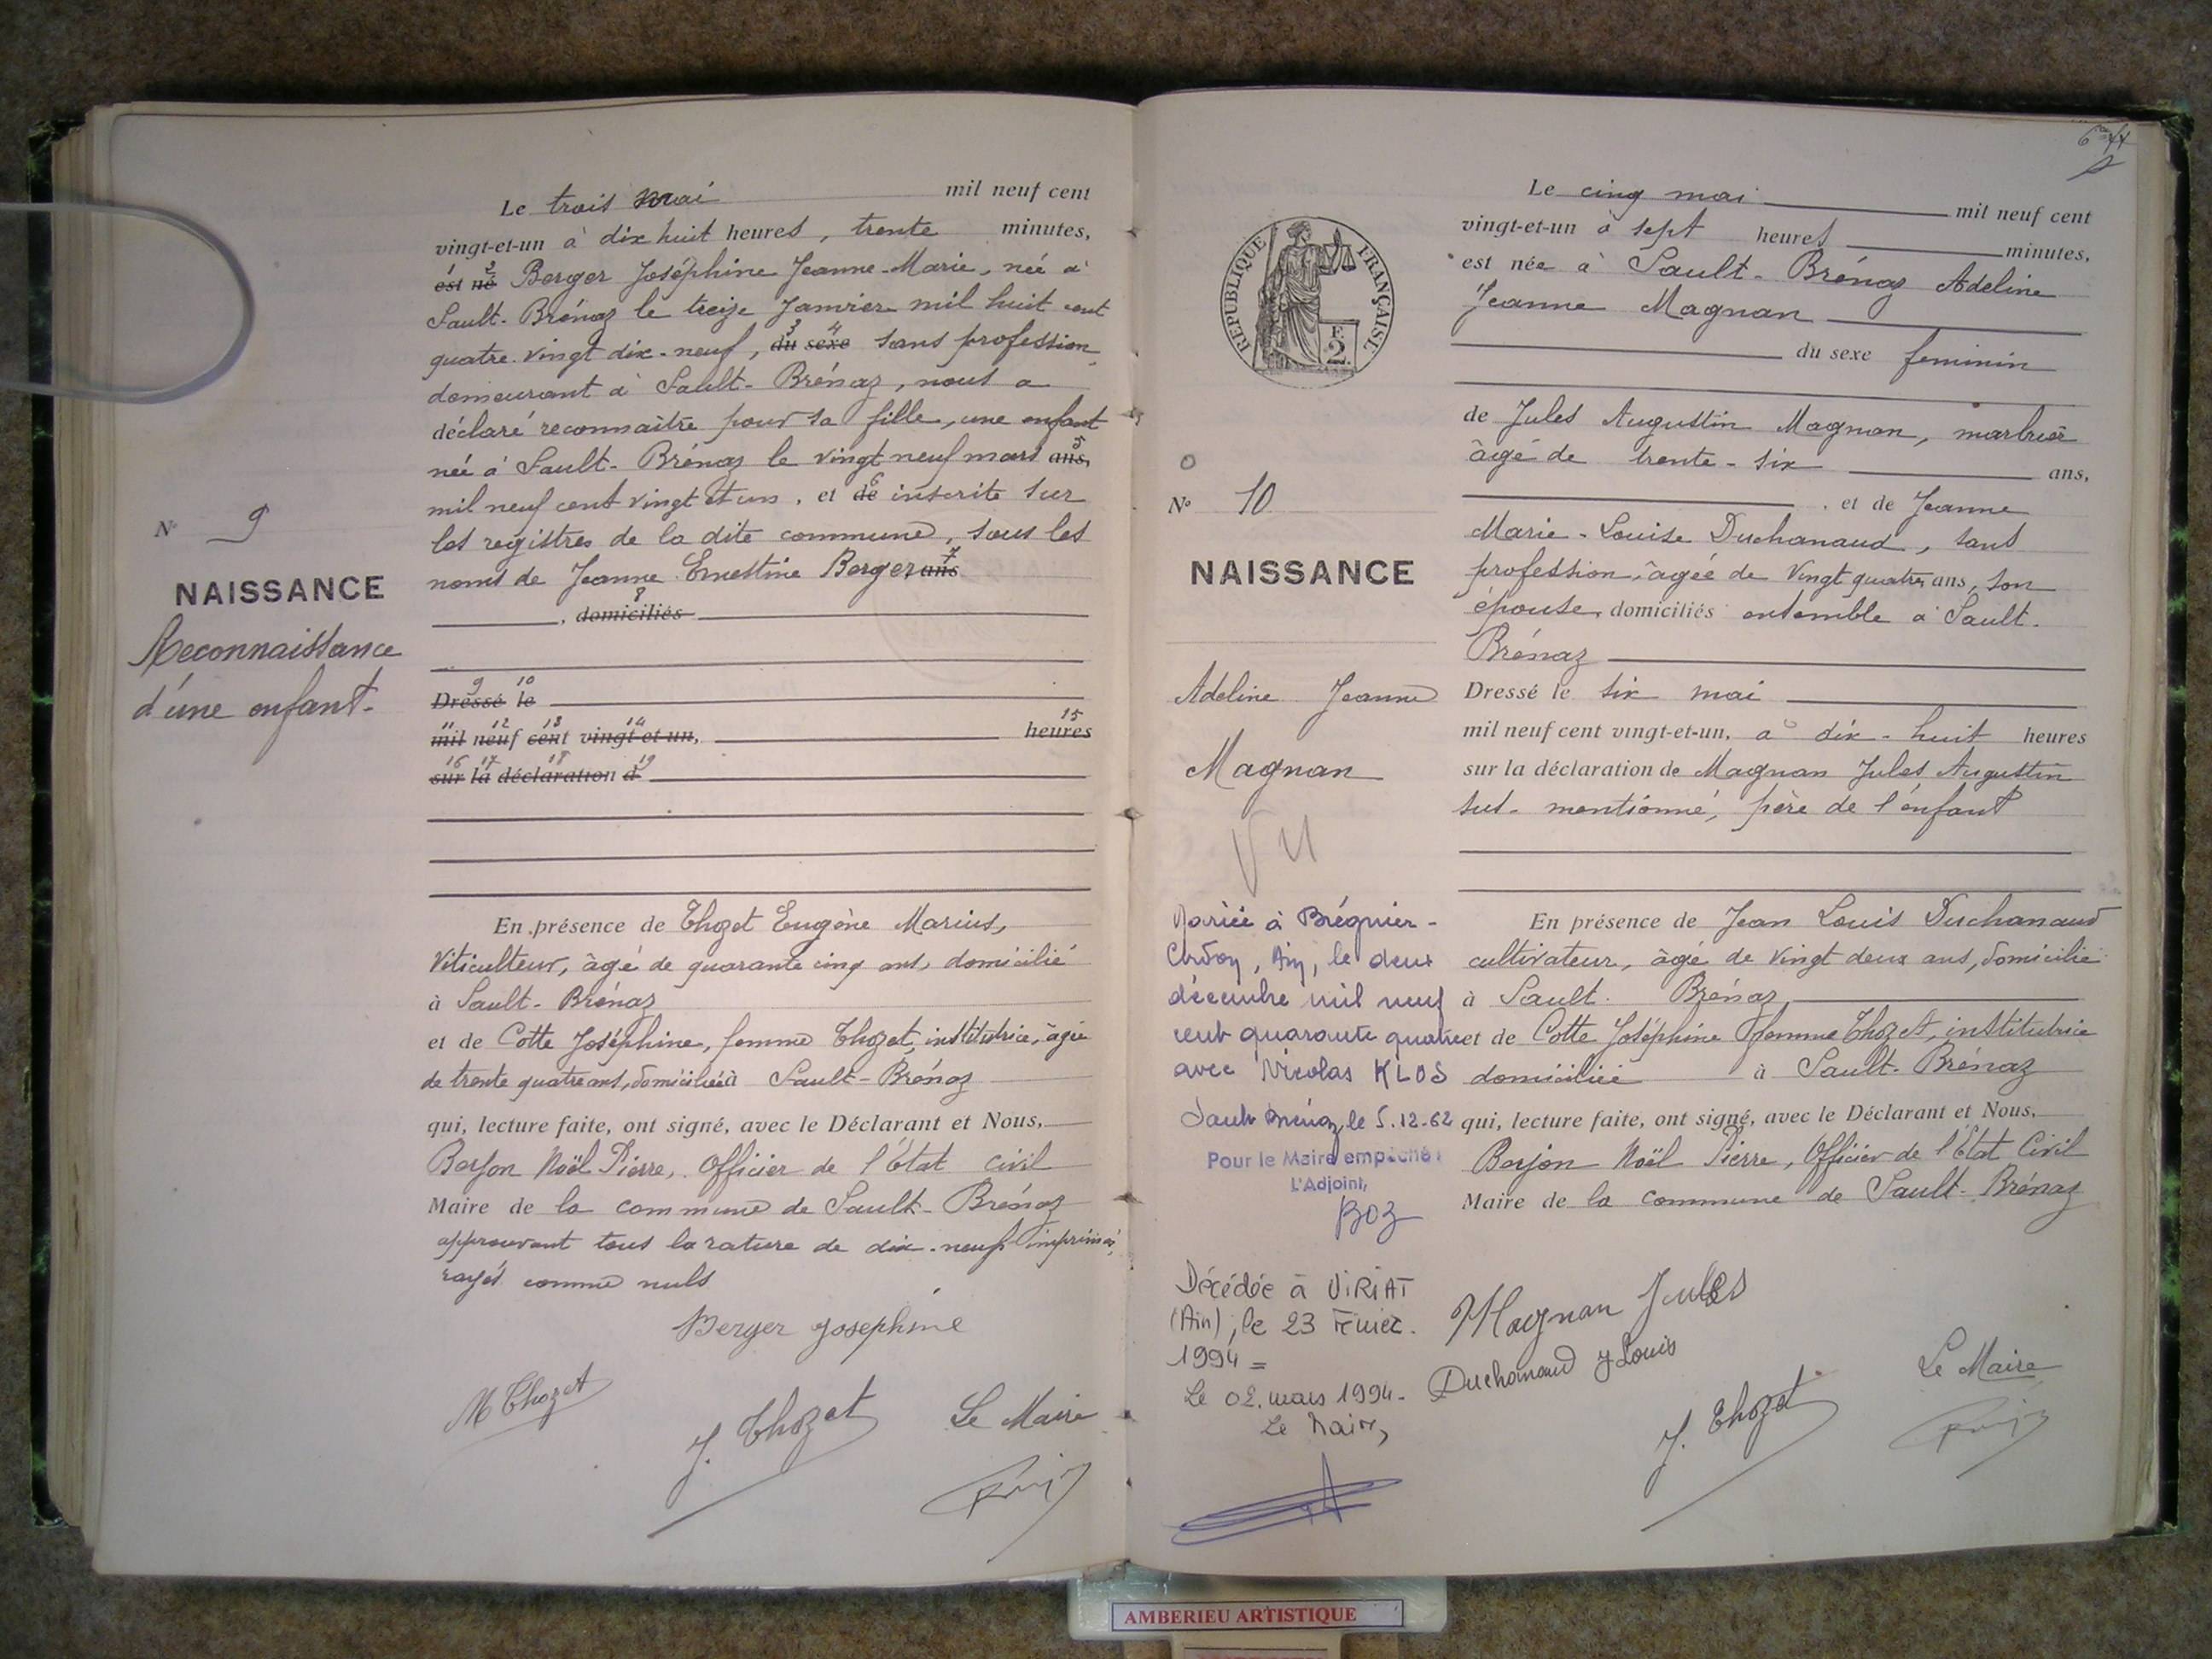 Le trois mai mil neuf cent
vingt-et-un à dix huit heures, trente minutes,
1 2
est né Berger Joséphine Jeanne-Marie, née à
Sault-Brénaz le treize Janvier mil huit cent
3 4
quatre vingt dix-neuf, du sexe sans profession,
demeurant à Sault-Brénaz, nous a
déclaré reconnaître pour sa fille, une enfant
5
née à Sault-Brénaz le vingt neuf mars ans,
6
mil neuf cent vingt et un, et de inscrite sur
les registres de la dite commune, sous les
7
noms de Jeanne Ernestine Berger ans
8
, domiciliés
9 10
Dressé le
11 12 13 14 15
mil neuf cent vingt-et-un, heures
16 17 18 19
sur la déclaration d
En présence de Thozet Eugène Marius,
Viticulteur, âgé de quarante cinq ans, domicilié
à Sault-Brénaz
et de Cotte Joséphine, femme Thozet, institutrice, âgée
de trente quatre ans, domiciliée à Sault-Brénaz
qui, lecture faite, ont signé, avec le Déclarant et Nous,
Borjon Noël Pierre, Officier de l'État civil
Maire de la commune de Sault-Brénaz
approuvant tous la rature de dix-neuf imprimés,
rayés comme nuls
Berger Joséphine
M Thozet
J. Thozet Le Maire
N° 9
NAISSANCE
Reconnaissance
d'une enfant.
REPUBLIQUE FRANÇAISE
2
N° 10
NAISSANCE
Adeline Jeanne
Magnan
VU
Mariée à Brégnier-
Cordon, Ain, le deux
décembre mil neuf
cent quarante quatre
avec Nicolas KLOS
Sault Brénaz, le 5.12.62
Pour le Maire empêché:
L'Adjoint,
Décédée à VIRIAT
(Ain), le 23 Février
1994 =
Le 02. mars 1994.
Le Maire,
Le cinq mai mil neuf cent
vingt-et-un à sept heures minutes,
est née à Sault-Brénaz Adeline
Jeanne Magnan
du sexe feminin
de Jules Augustin Magnan, marbrier
âgé de trente-six ans,
, et de Jeanne
Marie-Louise Duchanaud, sans
profession, âgée de vingt quatre ans, son
épouse, domiciliés ensemble à Sault-
Brénaz
Dressé le six mai
mil neuf cent vingt-et-un, à dix-huit heures
sur la déclaration de Magnan Jules Augustin
sus-mentionné, père de l'enfant
En présence de Jean Louis Duchanaud
cultivateur, âgé de vingt deux ans, domicilié
à Sault-Brénaz,
et de Cotte Joséphine femme Thozet, institutrice
domiciliée à Sault-Brénaz
qui, lecture faite, ont signé, avec le Déclarant et Nous,
Borjon Noël Pierre, Officier de l'État Civil
Maire de la commune de Sault-Brénaz
Magnan Jules
Duchanaud J Louis
J. Thozet
Le Maire
AMBERIEU ARTISTIQUE